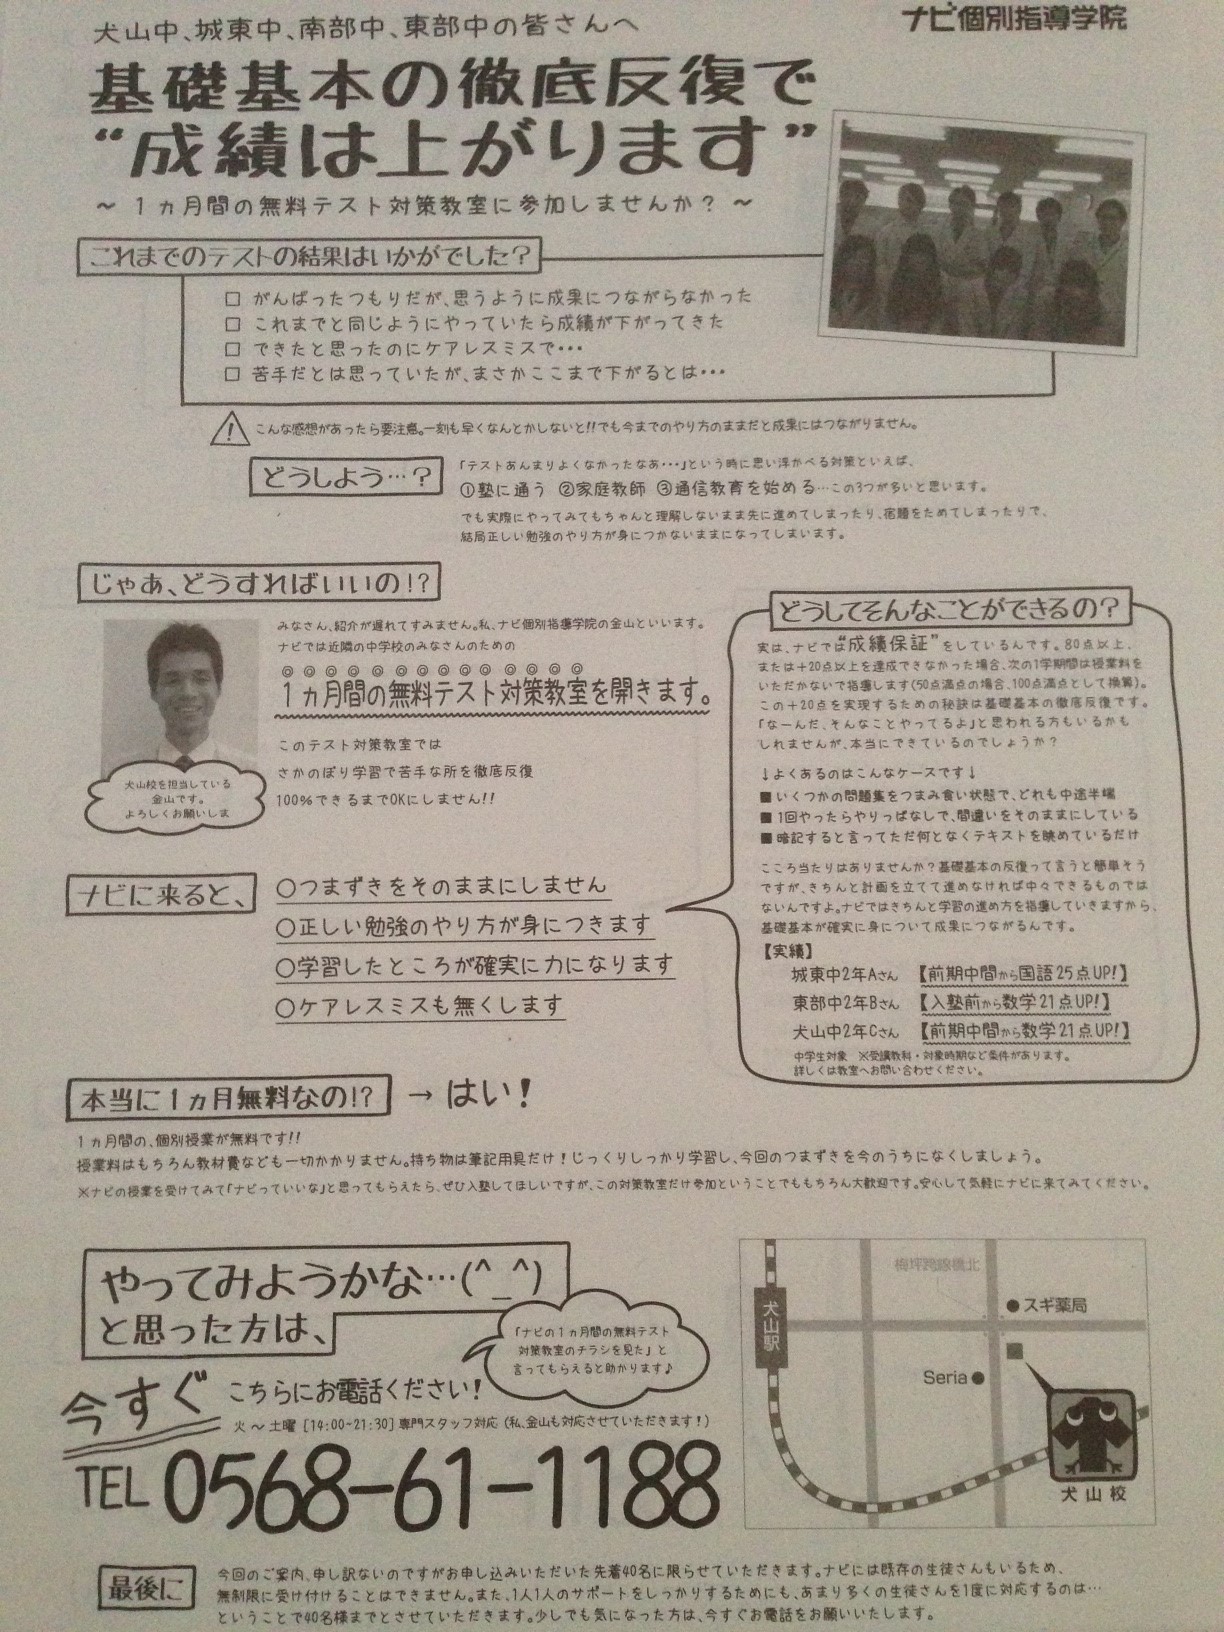 犬山中、城東中、南部中、東部中の皆さんへ
ナビ個別指導学院
基礎基本の徹底反復で
“成績は上がります”
～ 1ヵ月間の無料テスト対策教室に参加しませんか？ ～
これまでのテストの結果はいかがでした？
□ がんばったつもりだが、思うように成果につながらなかった
□ これまでと同じようにやっていたら成績が下がってきた
□ できたと思ったのにケアレスミスで･･･
□ 苦手だとは思っていたが、まさかここまで下がるとは･･･
！ こんな感想があったら要注意。一刻も早くなんとかしないと!!でも今までのやり方のままだと成果にはつながりません。
どうしよう…？
「テストあんまりよくなかったなあ･･･」という時に思い浮かべる対策といえば、
①塾に通う ②家庭教師 ③通信教育を始める…この3つが多いと思います。
でも実際にやってみてもちゃんと理解しないまま先に進めてしまったり、宿題をためてしまったりで、
結局正しい勉強のやり方が身につかないままになってしまいます。
じゃあ、どうすればいいの!?
みなさん、紹介が遅れてすみません。私、ナビ個別指導学院の金山といいます。
ナビでは近隣の中学校のみなさんのための
◎◎◎◎◎◎◎◎◎◎◎◎◎◎
1ヵ月間の無料テスト対策教室を開きます。
このテスト対策教室では
さかのぼり学習で苦手な所を徹底反復
100％できるまでOKにしません!!
犬山校を担当している
金山です。
よろしくお願いしま
ナビに来ると、
○つまずきをそのままにしません
○正しい勉強のやり方が身につきます
○学習したところが確実に力になります
○ケアレスミスも無くします
どうしてそんなことができるの？
実は、ナビでは“成績保証”をしているんです。80点以上、
または＋20点以上を達成できなかった場合、次の1学期間は授業料を
いただかないで指導します(50点満点の場合、100点満点として換算)。
この＋20点を実現するための秘訣は基礎基本の徹底反復です。
「なーんだ、そんなことやってるよ」と思われる方もいるかも
しれませんが、本当にできているのでしょうか？
↓よくあるのはこんなケースです↓
■いくつかの問題集をつまみ食い状態で、どれも中途半端
■1回やったらやりっぱなしで、間違いをそのままにしている
■暗記すると言ってただ何となくテキストを眺めているだけ
こころ当たりはありませんか？基礎基本の反復って言うと簡単そう
ですが、きちんと計画を立てて進めなければ中々できるものでは
ないんですよ。ナビではきちんと学習の進め方を指導していきますから、
基礎基本が確実に身について成果につながるんです。
【実績】
城東中2年Aさん 【前期中間から国語25点UP!】
東部中2年Bさん 【入塾前から数学21点UP!】
犬山中2年Cさん 【前期中間から数学21点UP!】
中学生対象 ※受講教科・対象時期など条件があります。
詳しくは教室へお問い合わせください。
本当に1ヵ月無料なの!? → はい！
1ヵ月間の、個別授業が無料です!!
授業料はもちろん教材費なども一切かかりません。持ち物は筆記用具だけ！じっくりしっかり学習し、今回のつまずきを今のうちになくしましょう。
※ナビの授業を受けてみて「ナビっていいな」と思ってもらえたら、ぜひ入塾してほしいですが、この対策教室だけ参加ということでももちろん大歓迎です。安心して気軽にナビに来てみてください。
やってみようかな…(^_^)
と思った方は、
「ナビの1ヵ月間の無料テスト
対策教室のチラシを見た」と
言ってもらえると助かります♪
今すぐ こちらにお電話ください！
火～土曜 [14:00~21:30] 専門スタッフ対応 (私、金山も対応させていただきます！)
TEL 0568-61-1188
梅坪跨線橋北
犬山駅
●スギ薬局
Seria●
犬山校
最後に
今回のご案内、申し訳ないのですがお申し込みいただいた先着40名に限らせていただきます。ナビには既存の生徒さんもいるため、
無制限に受け付けることはできません。また、1人1人のサポートをしっかりするためにも、あまり多くの生徒さんを1度に対応するのは…
ということで40名様までとさせていただきます。少しでも気になった方は、今すぐお電話をお願いいたします。